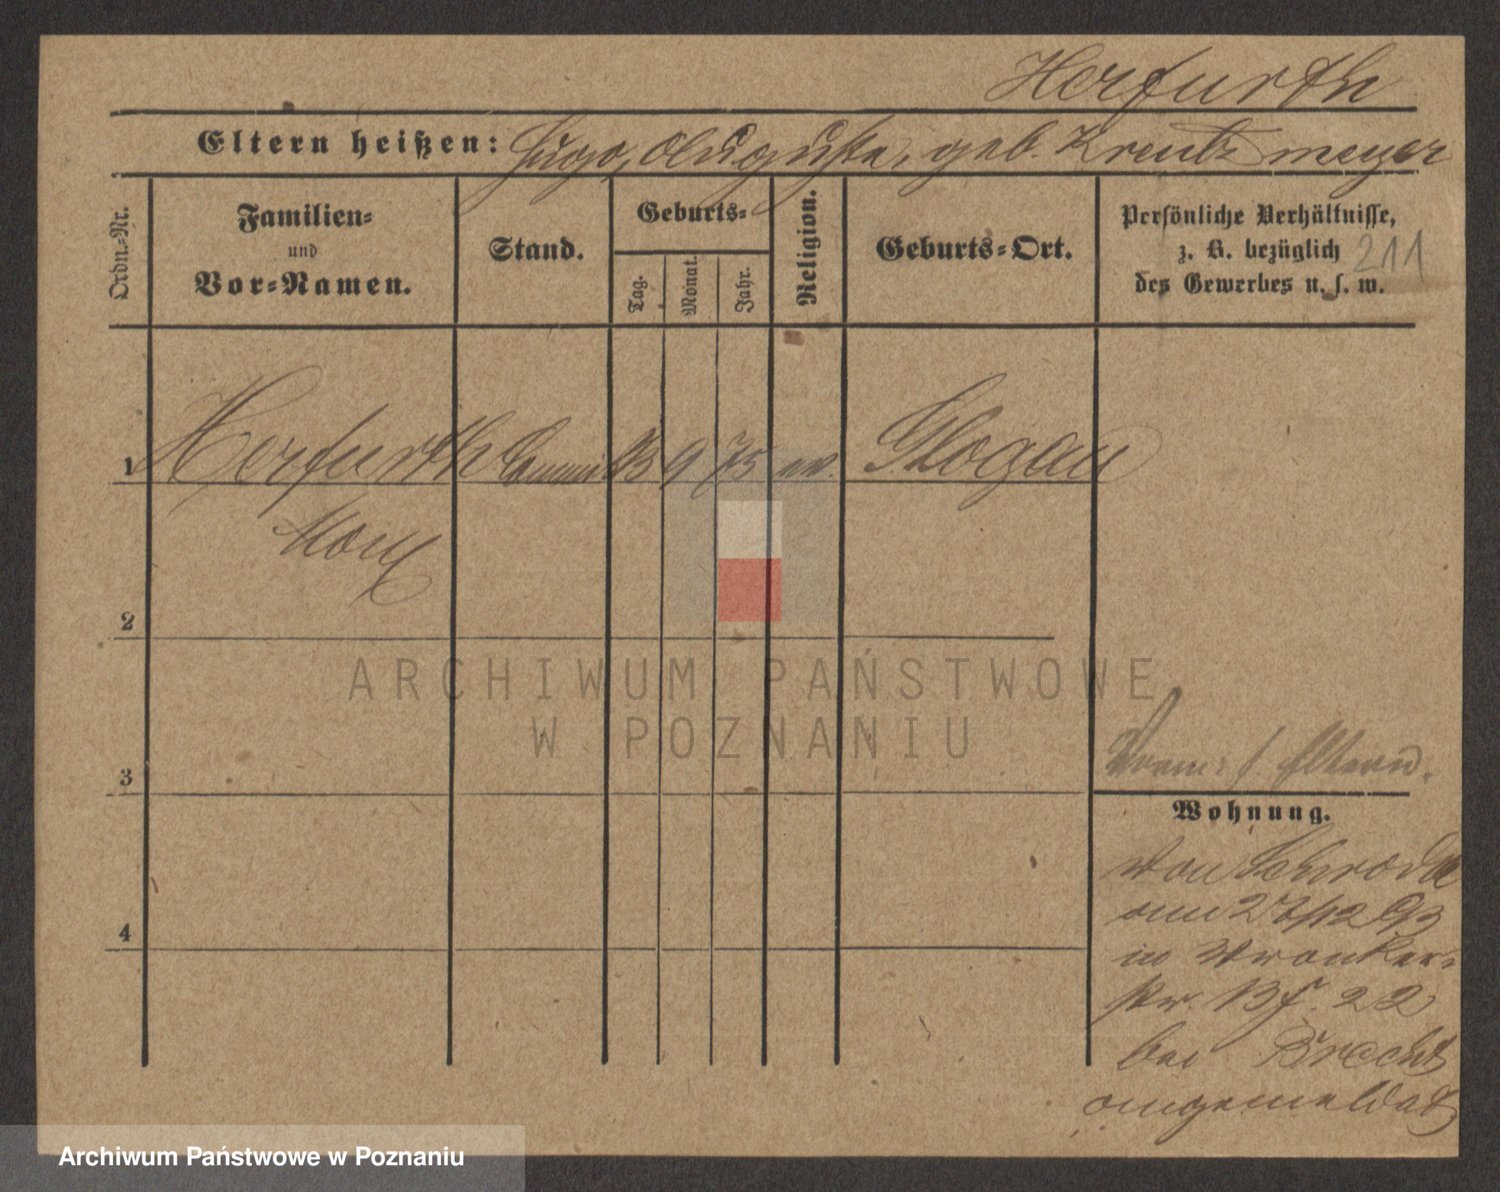 Herfurth
Eltern heißen: Hugo, Auguste, geb. Kreutzmeyer
Ordn.-Nr.
Familien-
und
Vor-Namen.
Stand.
Geburts-
Tag.
Monat.
Jahr.
Religion.
Geburts-Ort.
Persönliche Verhältnisse,
z. B. bezüglich
des Gewerbes u. s. w.
211
1 Herfurth Commis 13 9 75 ev. Glogau
Max
2
3
4
ARCHIWUM PAŃSTWOWE
W POZNANIU
Verm: / Eltern.
Wohnung.
von Schroda
am 27/12 93
in Wronker-
str. 22
bei Brecht
angemeldet
Archiwum Państwowe w Poznaniu